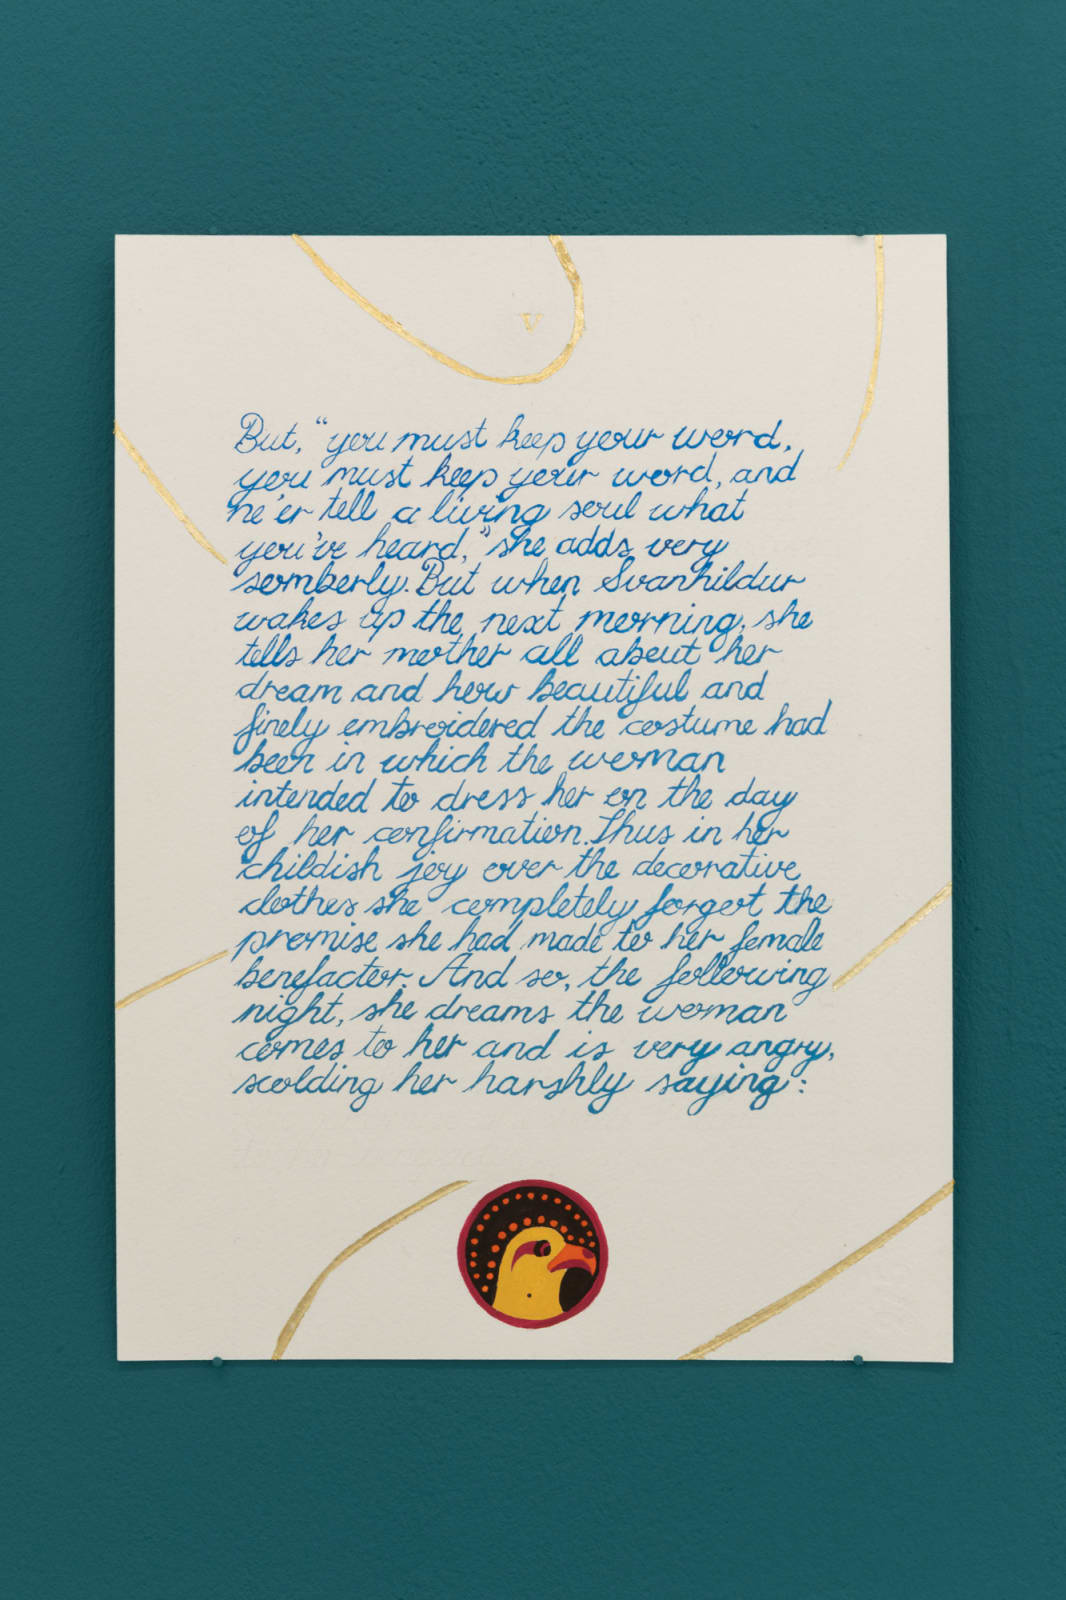 V
But, “you must keep your word,
you must keep your word, and
ne'er tell a living soul what
you've heard,” she adds very
somberly. But when Svanhildur
wakes up the next morning, she
tells her mother all about her
dream and how beautiful and
finely embroidered the costume had
been in which the woman
intended to dress her on the day
of her confirmation. Thus in her
childish joy over the decorative
clothes she completely forgot the
promise she had made to her female
benefactor. And so, the following
night, she dreams the woman
comes to her and is very angry,
scolding her harshly saying: